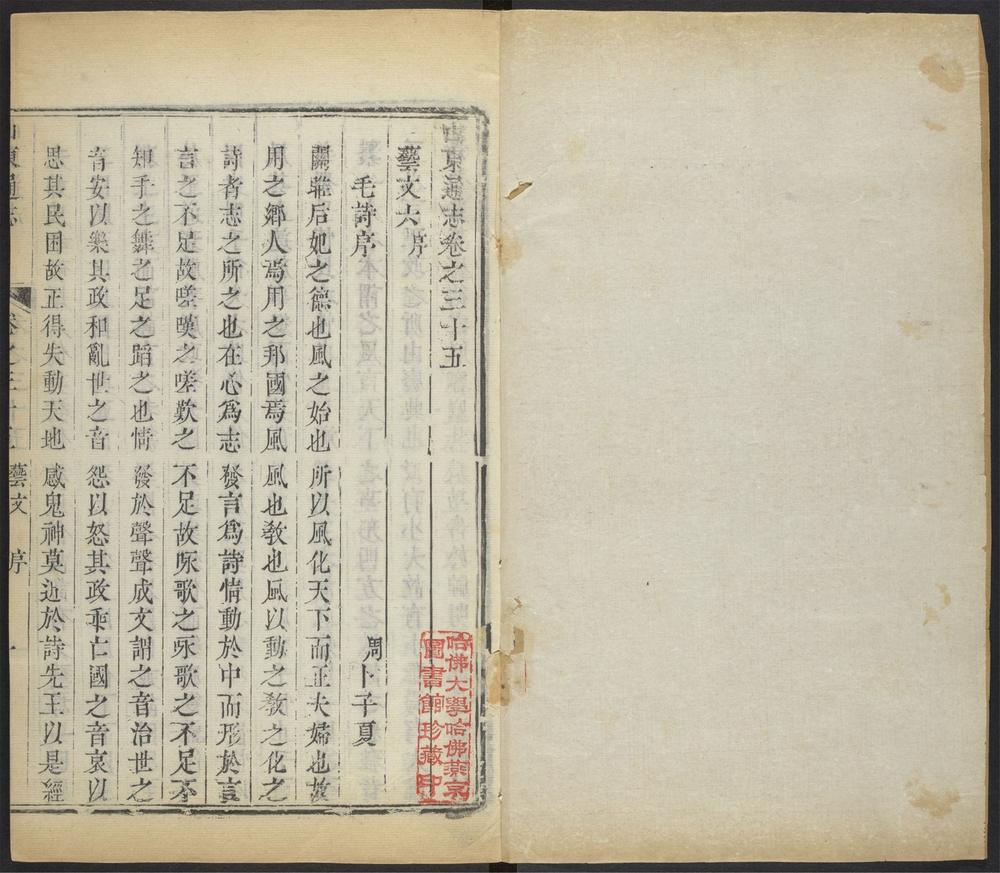 山東通志卷之三十五
藝文六序
毛詩序 周卜子夏
關雎后妃之德也風之始也所以風化天下而正夫婦也故
用之鄉人焉用之邦國焉風風也教也風以動之教之化之
詩者志之所之也在心為志發言為詩情動於中而形於言
言之不足故嗟嘆之嗟歎之不足故咏歌之咏歌之不足不
知手之舞之足之蹈之也情發於聲聲成文謂之音治世之
音安以樂其政和亂世之音怨以怒其政乖亡國之音哀以
思其民困故正得失動天地感鬼神莫近於詩先王以是經
山東通志 卷之三十五 藝文 序 一
哈佛大學哈佛燕京
圖書館珍藏印